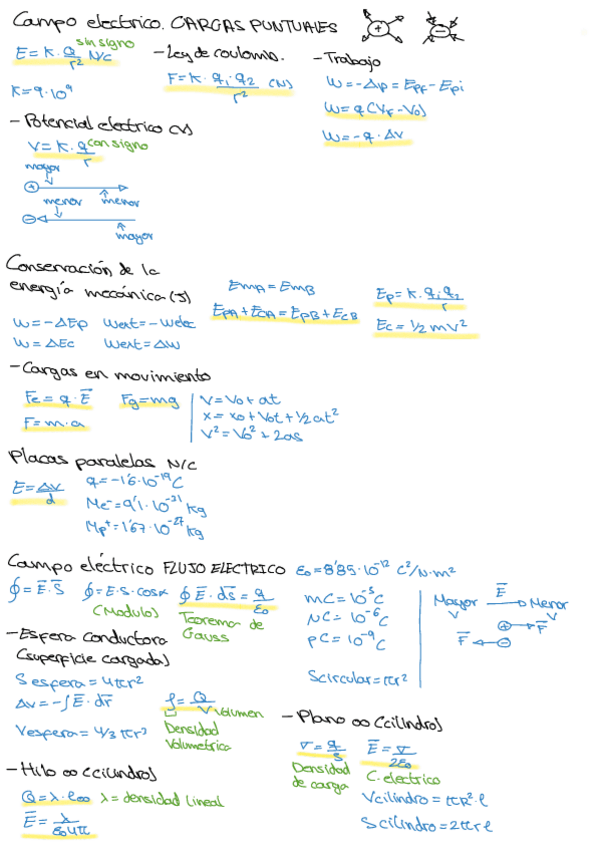 Campo electrico. CARGAS PUNTUALES
E = K · Q/r² N/C
sin signo
K = 9 · 10⁹
- Ley de coulomb.
F = K · q₁ · q₂/r² (N)
- Trabajo
W = -Δp = Epf - Epi
W = q(Vf - V0)
W = -q · ΔV
- Potencial electrico (V)
V = K · q/r
con signo
mayor
+
menor
menor
-
mayor
Conservación de la
energía mecánica (J)
W = -ΔEp Wext = -Welec
W = ΔEc Wext = ΔW
EmA = EmB
EpA + EcA = EpB + EcB
Ep = K · q₁ q₂/r
Ec = 1/2 mv²
- Cargas en movimiento
Fe = q · E⃗ Fg = mg
F = m · a
V = V0 + at
x = x0 + V0t + 1/2 at²
V² = V0² + 2as
Placas paralelas N/C
E = ΔV/d
q = -1'6 · 10⁻¹⁹ C
Me⁻ = 9'1 · 10⁻³¹ kg
Mp⁺ = 1'67 · 10⁻²⁷ kg
Campo eléctrico FLUJO ELECTRICO ε0 = 8'85 · 10⁻¹² C²/N·m²
∮ = E⃗ · S⃗ ∮ = E · S · cosα ∮ E⃗ · ds⃗ = q/ε0
(Modulo) Teorema de
Gauss
mC = 10⁻³ C
NC = 10⁻⁶ C
pC = 10⁻⁹ C
Scircular = πr²
Mayor E⃗ Menor
V V
+ F⃗
F⃗ -
- Esfera conductora
(superficie cargada)
S esfera = 4πr²
ΔV = -∫E⃗ · dr⃗
Vesfera = 4/3 πr³
ρ = Q/V
Volumen
Densidad
Volumetrica
- Plano ∞ (cilindro)
σ = q/S E⃗ = σ/2ε0
Densidad
de carga
C. electrico
Vcilindro = πR² · l
Scilindro = 2πrl
- Hilo ∞ (cilindro)
Q = λ · l∞ λ = densidad lineal
E⃗ = λ/ε04π